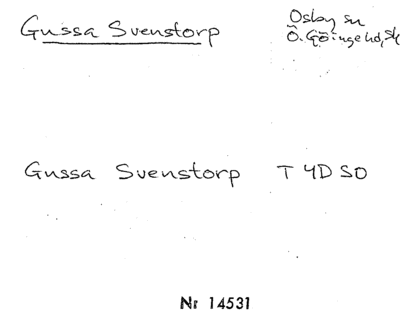 Gussa Svenstorp
Osby sn
Ö. Göinge hd, Sk
Gussa Svenstorp T 4D SO
Nr 14531